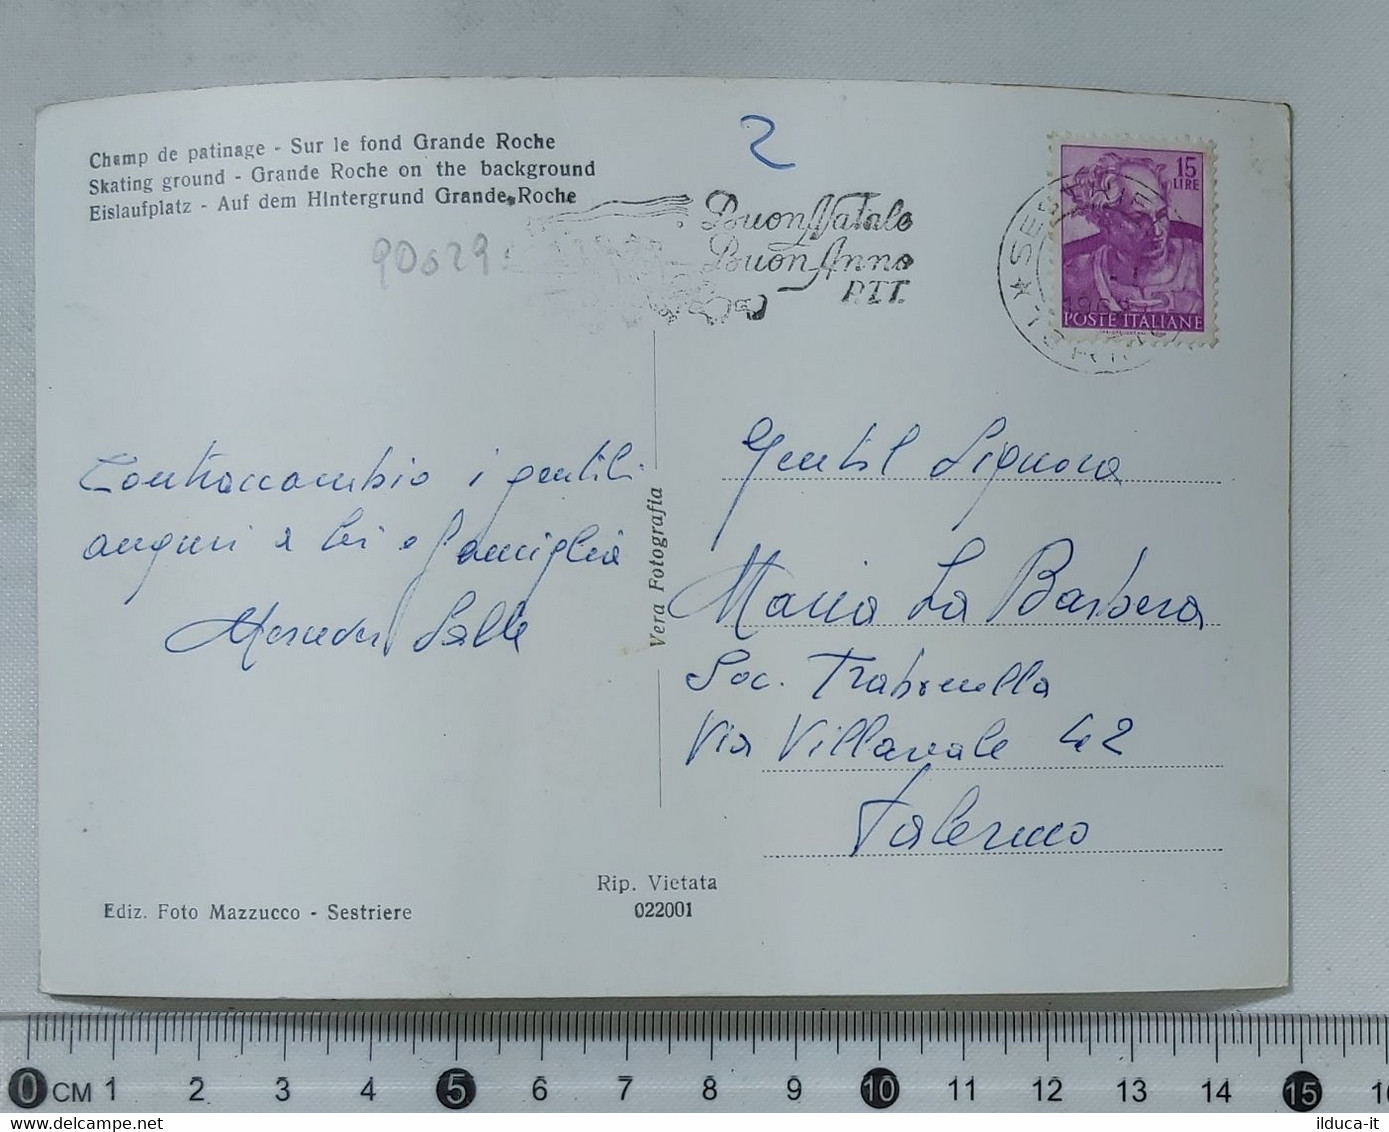 Champ de patinage - Sur le fond Grande Roche
Skating ground - Grande Roche on the background
Eislaufplatz - Auf dem Hintergrund Grande Roche
2
90629
Buon Natale
Buon Anno
P.T.T.
15
LIRE
POSTE ITALIANE
Contraccambio i gentili
auguri a lei e famiglia
Mercedes
Vera Fotografia
Gentil Signora
Maria La Barbera
Soc. Trabonella
Via Villareale 42
Palermo
Rip. Vietata
022001
Ediz. Foto Mazzucco - Sestriere
0 CM 1 2 3 4 5 6 7 8 9 10 11 12 13 14 15
ilduca-it